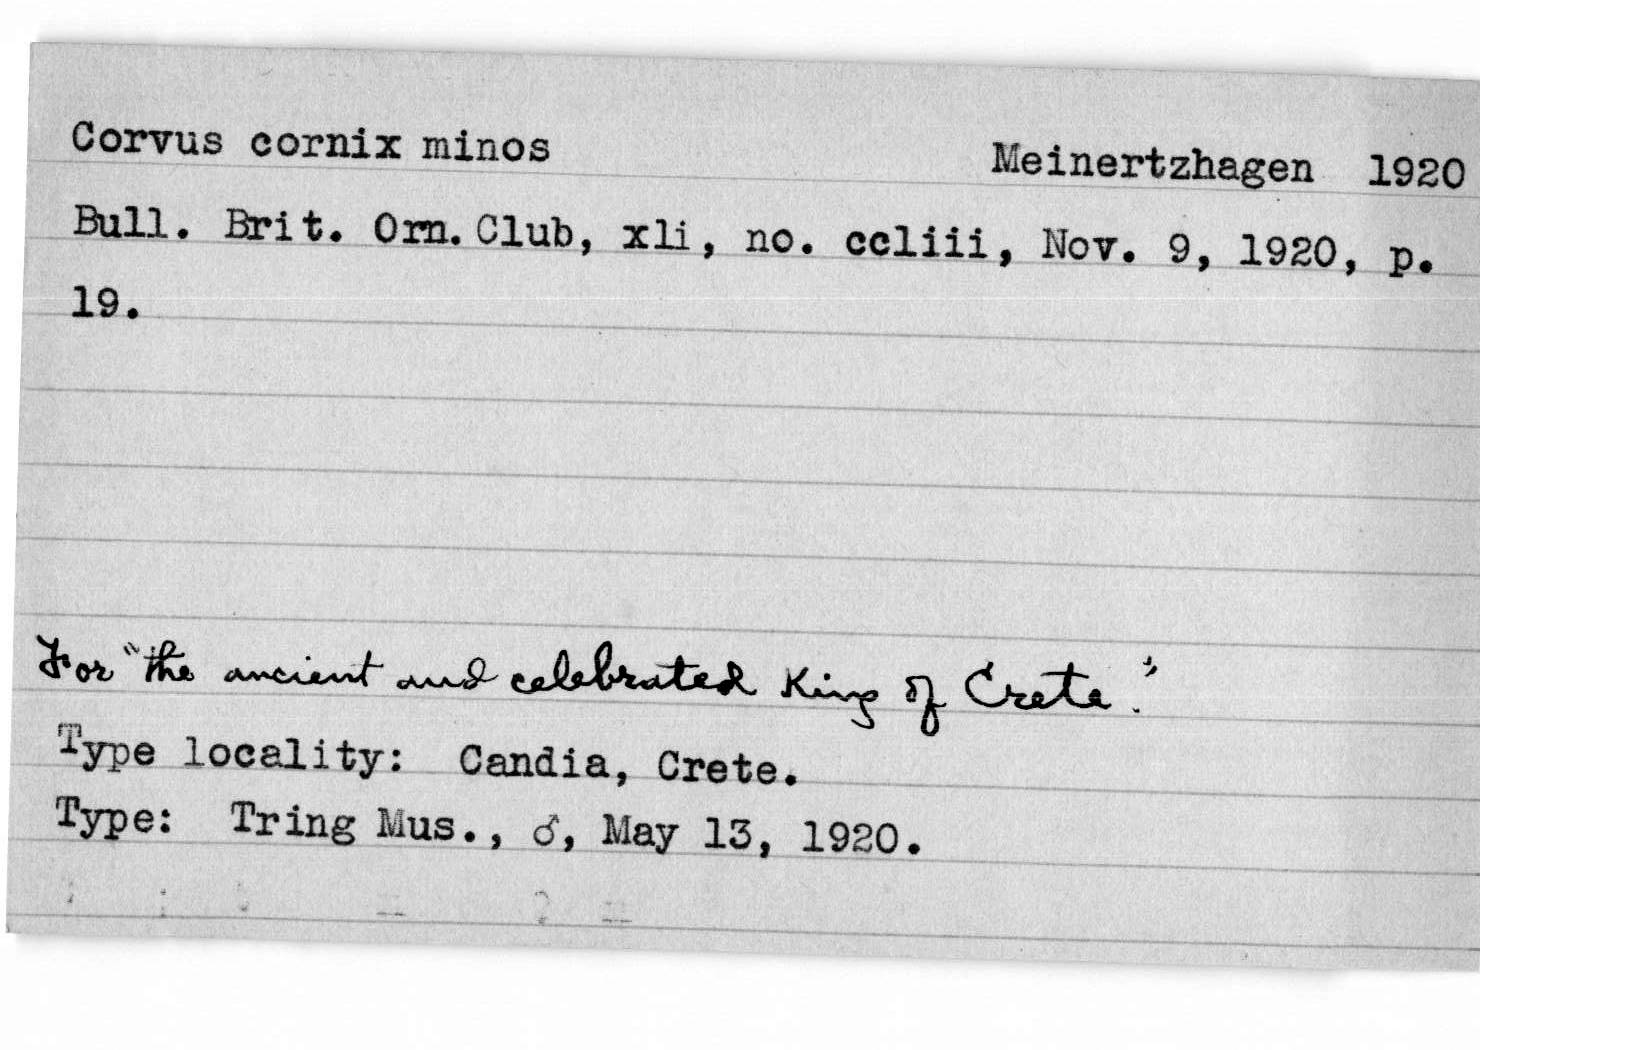 Corvus cornix minos Meinertzhagen 1920
Bull. Brit. Orn. Club, xli, no. ccliii, Nov. 9, 1920, p.
19.
For "the ancient and celebrated King of Crete."
Type locality: Candia, Crete.
Type: Tring Mus., ♂, May 13, 1920.